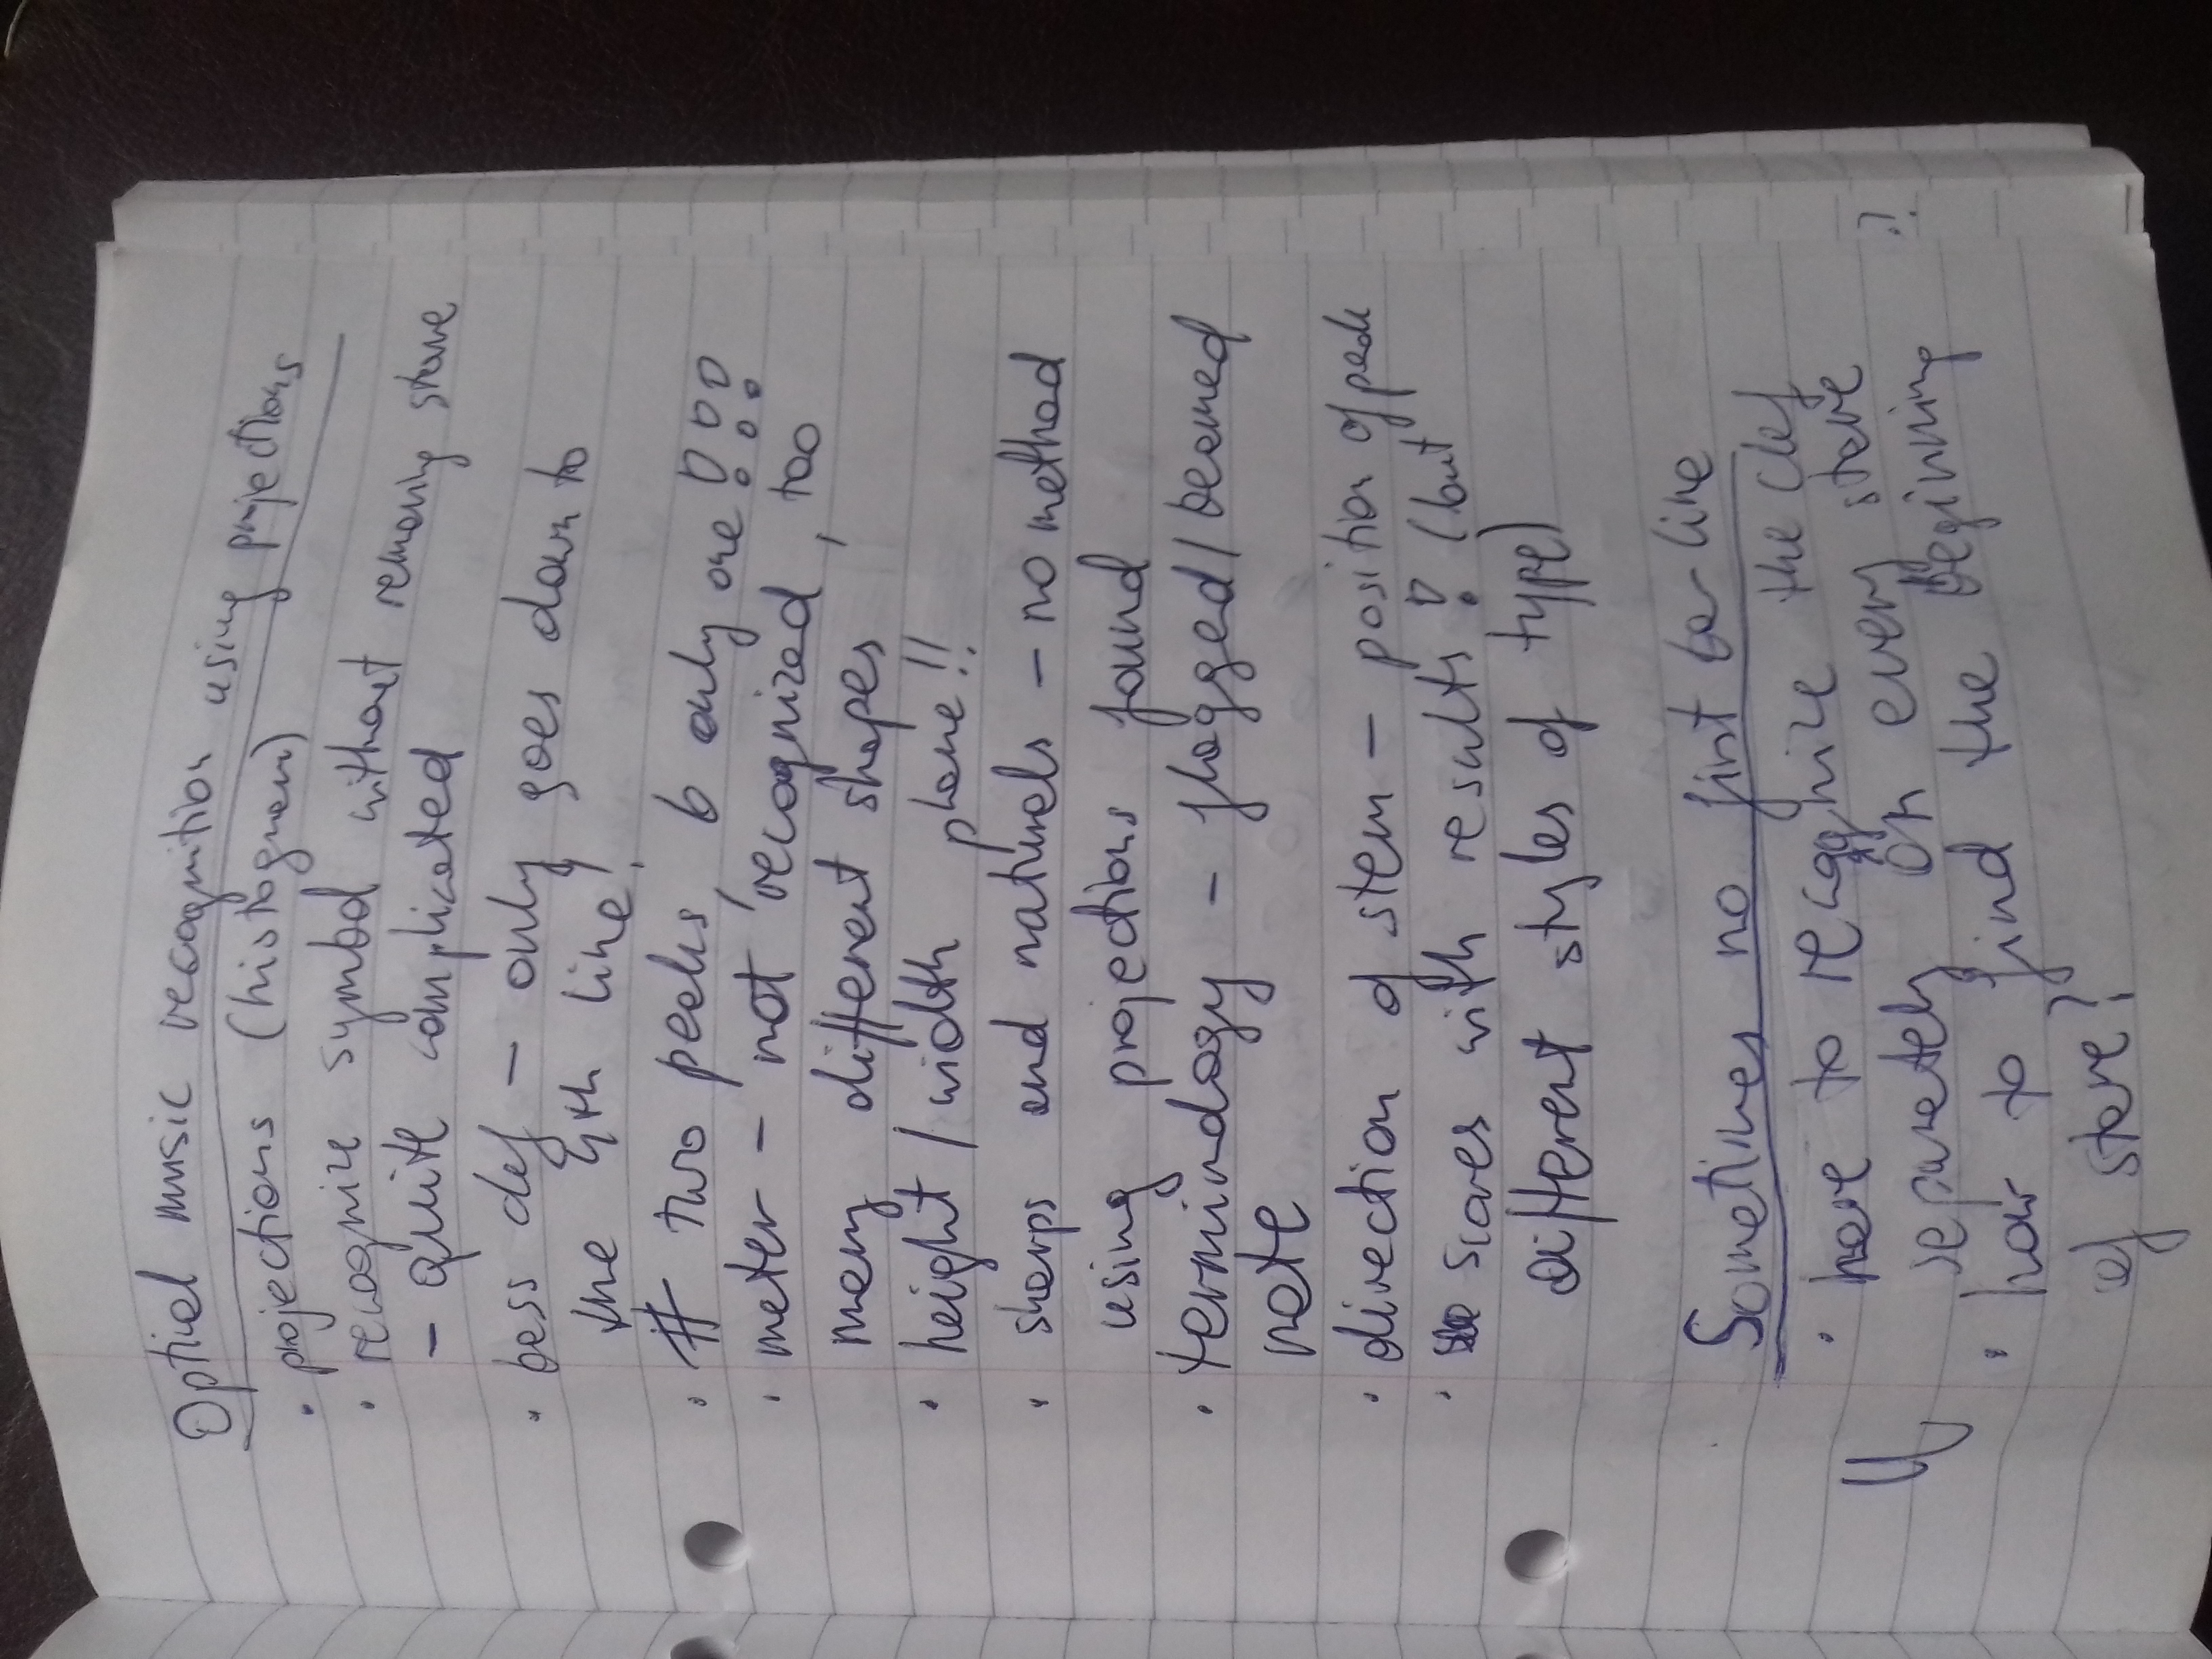 Optical music recognition using projections
• projections (histogram)
• recognize symbol without removing stave
– quite complicated
• bass clef – only goes down to
the 4th line!
• # two peaks, b only one!!!
• meter – not recognized, too
many different shapes
• height/width plane!!
• sharps and naturals – no method
using projections found
• terminology – flagged/beamed
note
• direction of stem – position of peak
• scores with results! (but
different styles of type)
Sometimes no first bar-line
• have to recognize the clef
separately on every stave
• how to find the beginning
of stave?